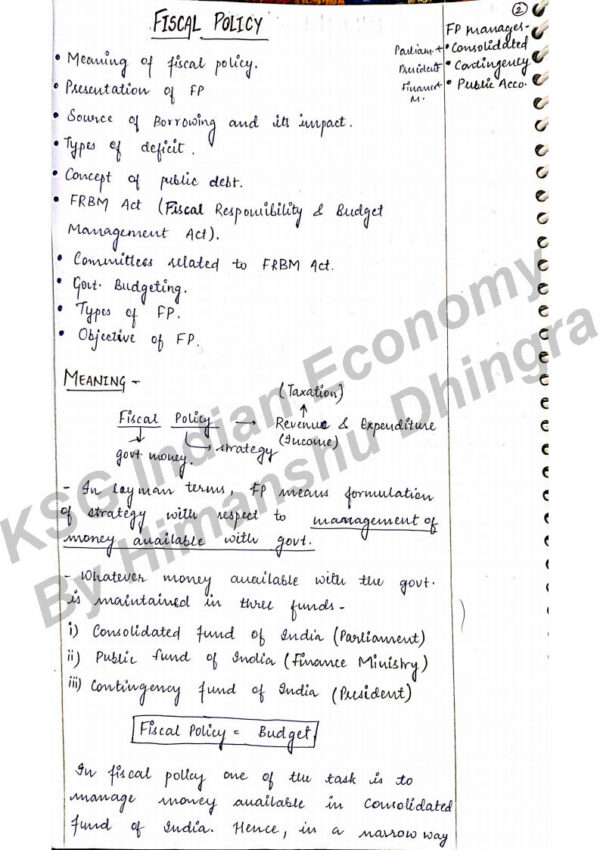 2
FISCAL POLICY
FP manages-
Parliam + • Consolidated
President • Contingency
Finance M. • Public Acco.
• Meaning of fiscal policy.
• Presentation of FP
• Source of Borrowing and its impact.
• Types of deficit.
• Concept of public debt.
• FRBM Act (Fiscal Responsibility & Budget
Management Act).
• Committees related to FRBM Act.
• Govt. Budgeting.
• Types of FP.
• Objective of FP.
MEANING -
(Taxation)
↑
Fiscal Policy → Revenue & Expenditure
(Income)
govt money. strategy
- In layman terms, FP means formulation
of strategy with respect to management of
money available with govt.
- Whatever money available with the govt.
is maintained in three funds -
i) Consolidated fund of India (Parliament)
ii) Public fund of India (Finance Ministry)
iii) Contingency fund of India (President)
Fiscal Policy = Budget
In fiscal policy one of the task is to
manage money available in Consolidated
fund of India. Hence, in a narrow way
KSG Indian Economy
By Himanshu Dhingra